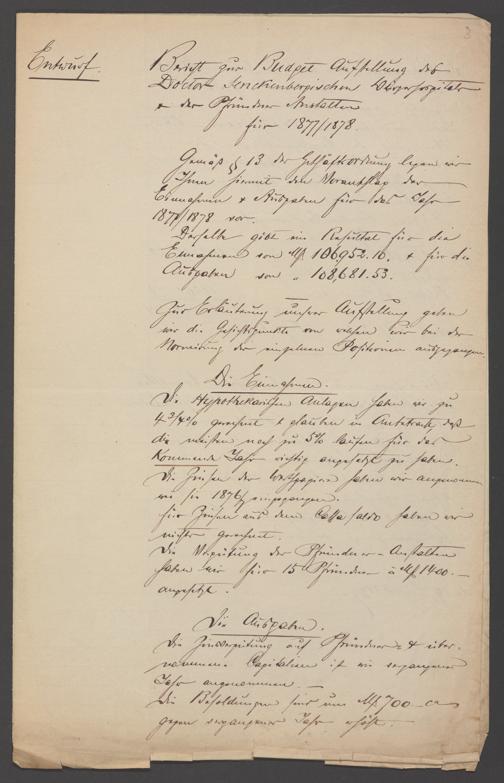 3
Entwurf.
Bericht zur Budget Aufstellung des
Doctor Senckenbergischen Bürgerhospitals
& der Pfründner Anstalten
für 1877/1878.
Gemäß § 13 der Geschäftsordnung legen wir
Ihnen hiermit den Voranschlag der
Einnahmen & Ausgaben für das Jahr
1877/1878 vor.
Derselbe gibt ein Resultat für die
Einnahmen von M. 106,952.10. & für die
Ausgaben von " 108,681.53.
Zur Erläuterung unserer Aufstellung geben
wir die Gesichtspunkte von welchen wir bei der
Normirung der einzelnen Positionen ausgegangen.
Die Einnahmen.
Die Hypothekarischen Anlagen haben wir zu
4 3/4 % gerechnet & glauben in Anbetracht daß
die meisten noch zu 5% laufen für das
kommende Jahr richtig angesetzt zu haben.
Die Zinsen der Werthpapiere haben wir angenommen
wie sie 1876/ eingegangen.
Für Zinsen aus dem Cassa Saldo haben wir
nichts gerechnet.
Die Vergütung der Pfründner-Anstalten
haben wir für 15 Pfründner à M. 1400.–
angesetzt.
Die Ausgaben.
Die Zinsvergütung auf Pfründner- & über-
nommene Capitalien ist wie vergangenes
Jahr angenommen.
Die Besoldungen sind um M. 700.– ca
gegen vergangenes Jahr erhöht.